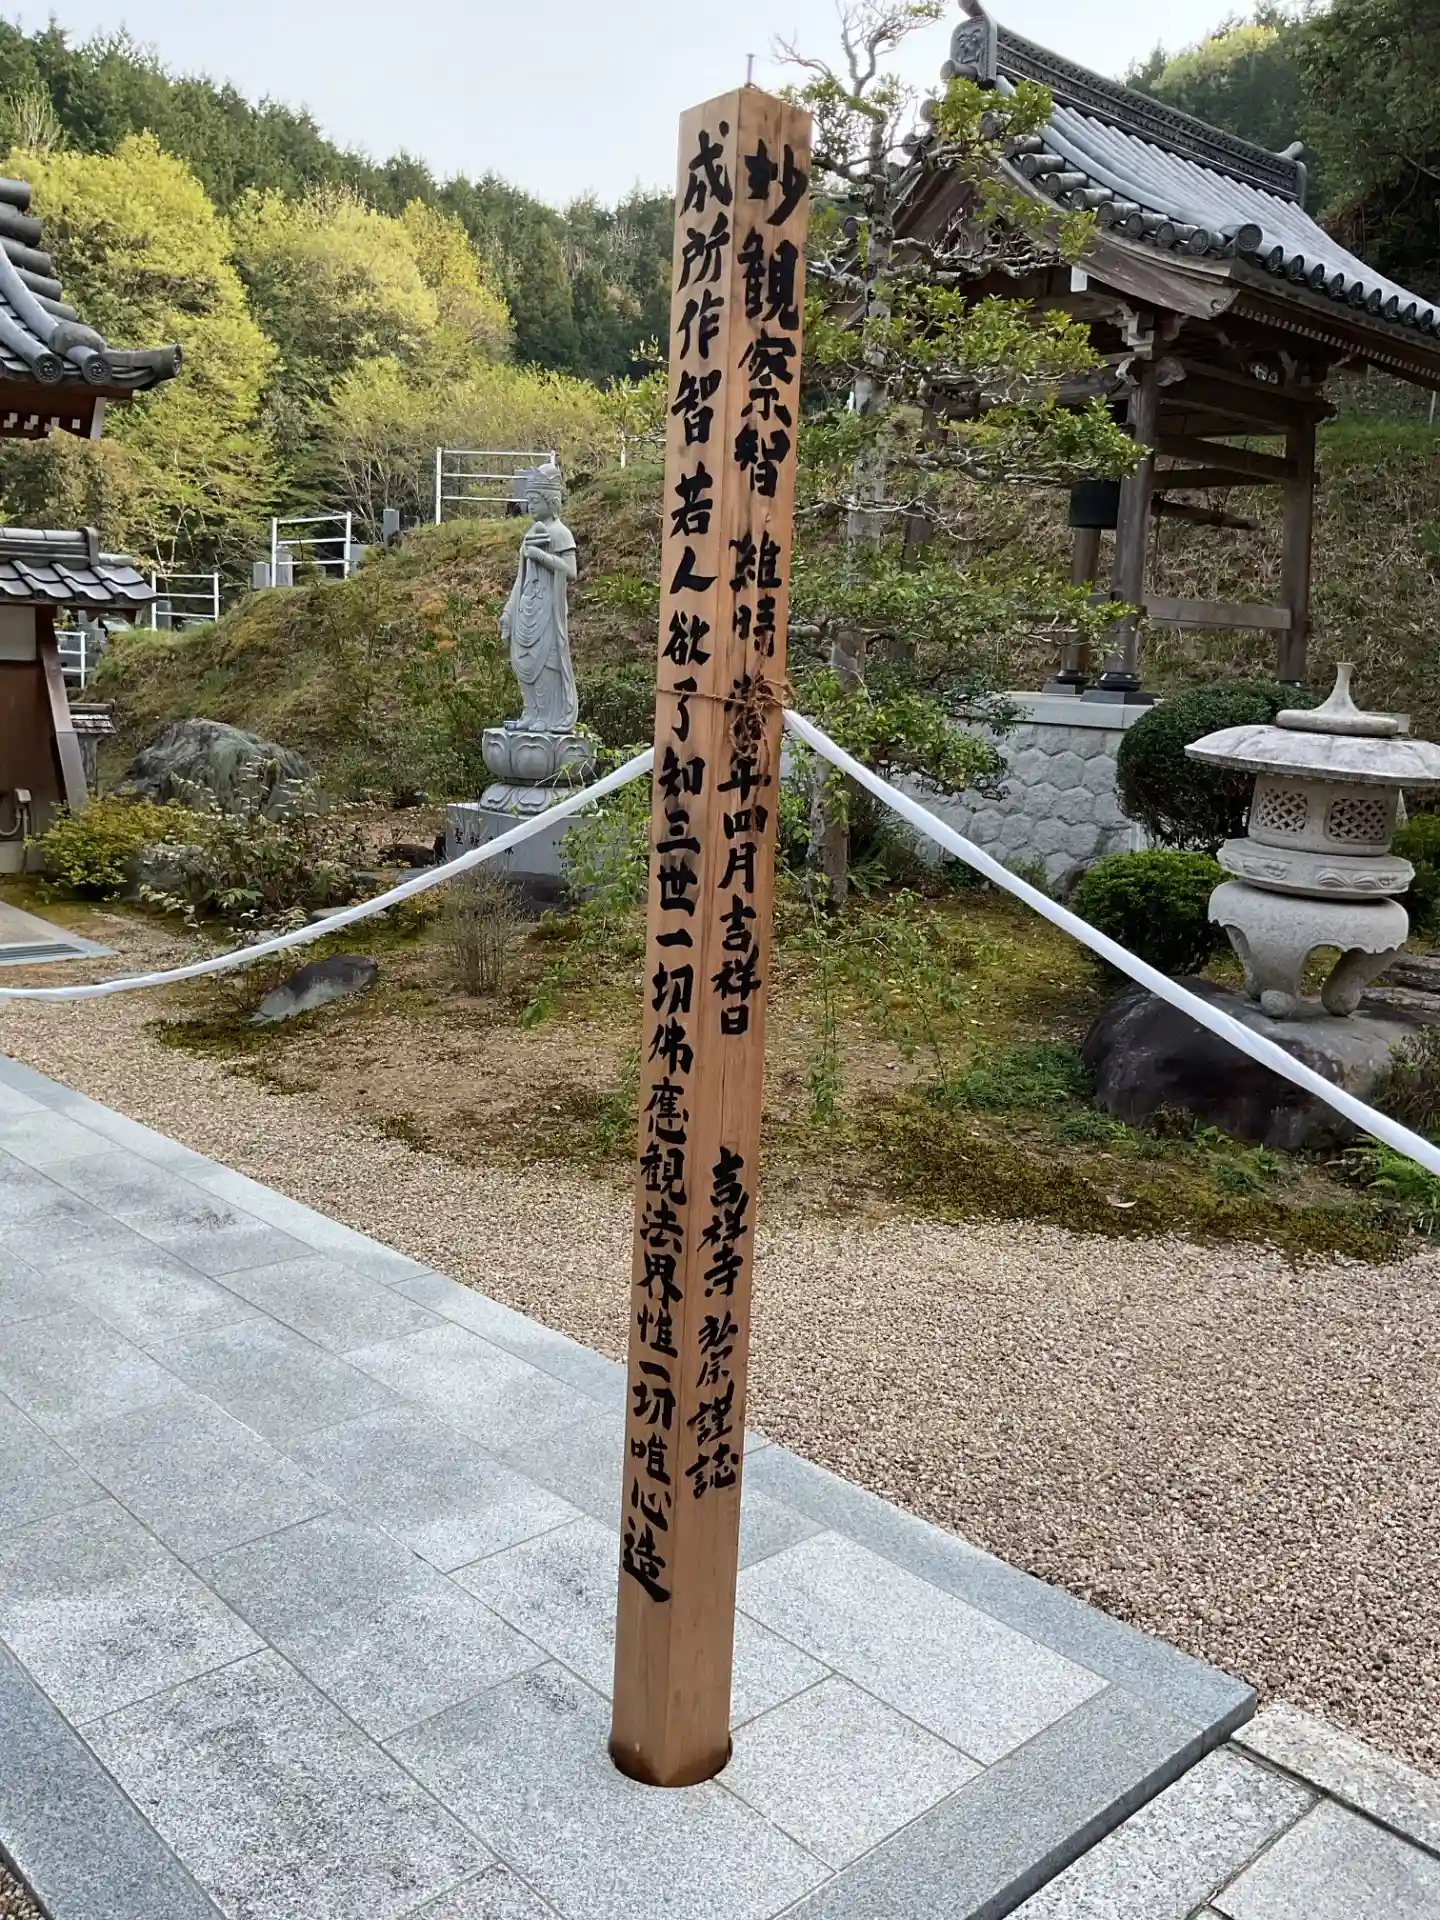 妙観察智 維時 年四月吉祥日 吉祥寺 弘宗 謹誌
成所作智若人欲了知三世一切佛應観法界惟一切唯心造